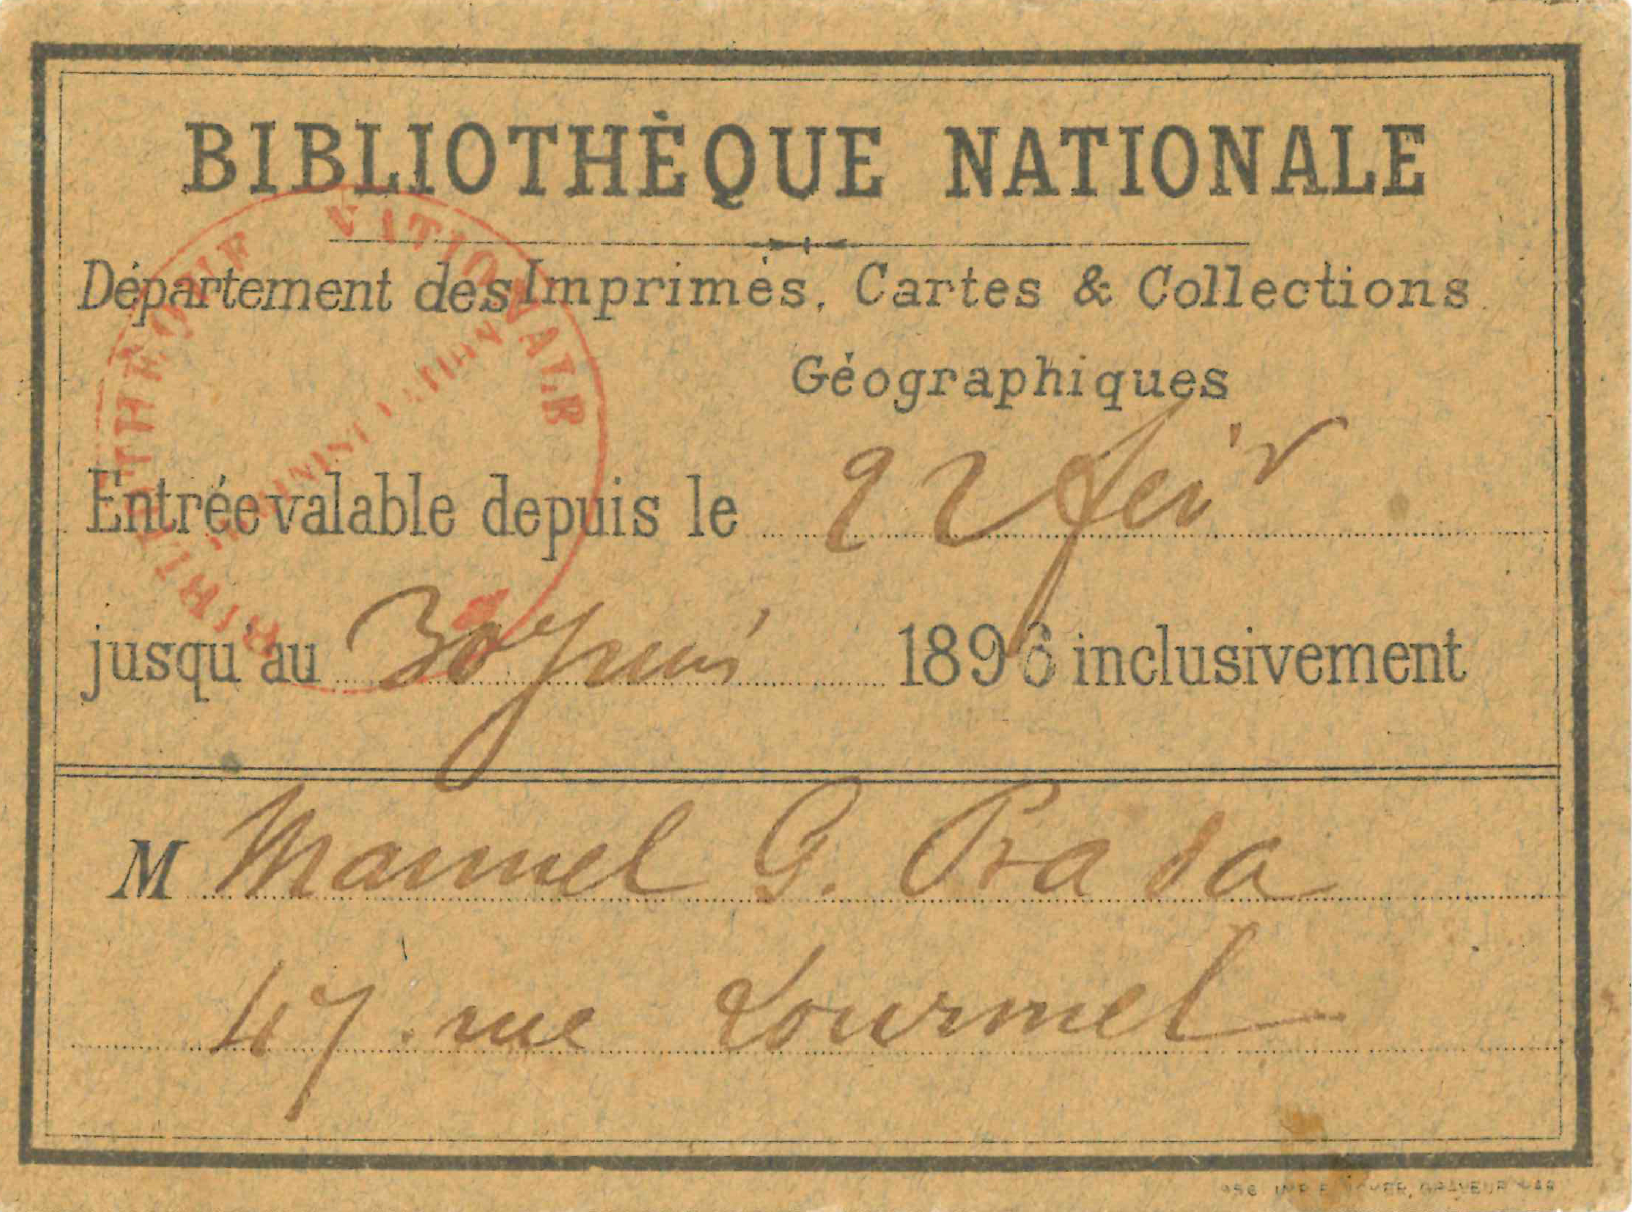 BIBLIOTHÈQUE NATIONALE
Département des Imprimés, Cartes & Collections
Géographiques
Entrée valable depuis le 22 fév r
jusqu'au 30 Juin 1896 inclusivement
M Manuel G. Prada
47 rue Lourmel
BIBLIOTHÈQUE NATIONALE
ADMINISTRATION
GRAVEUR